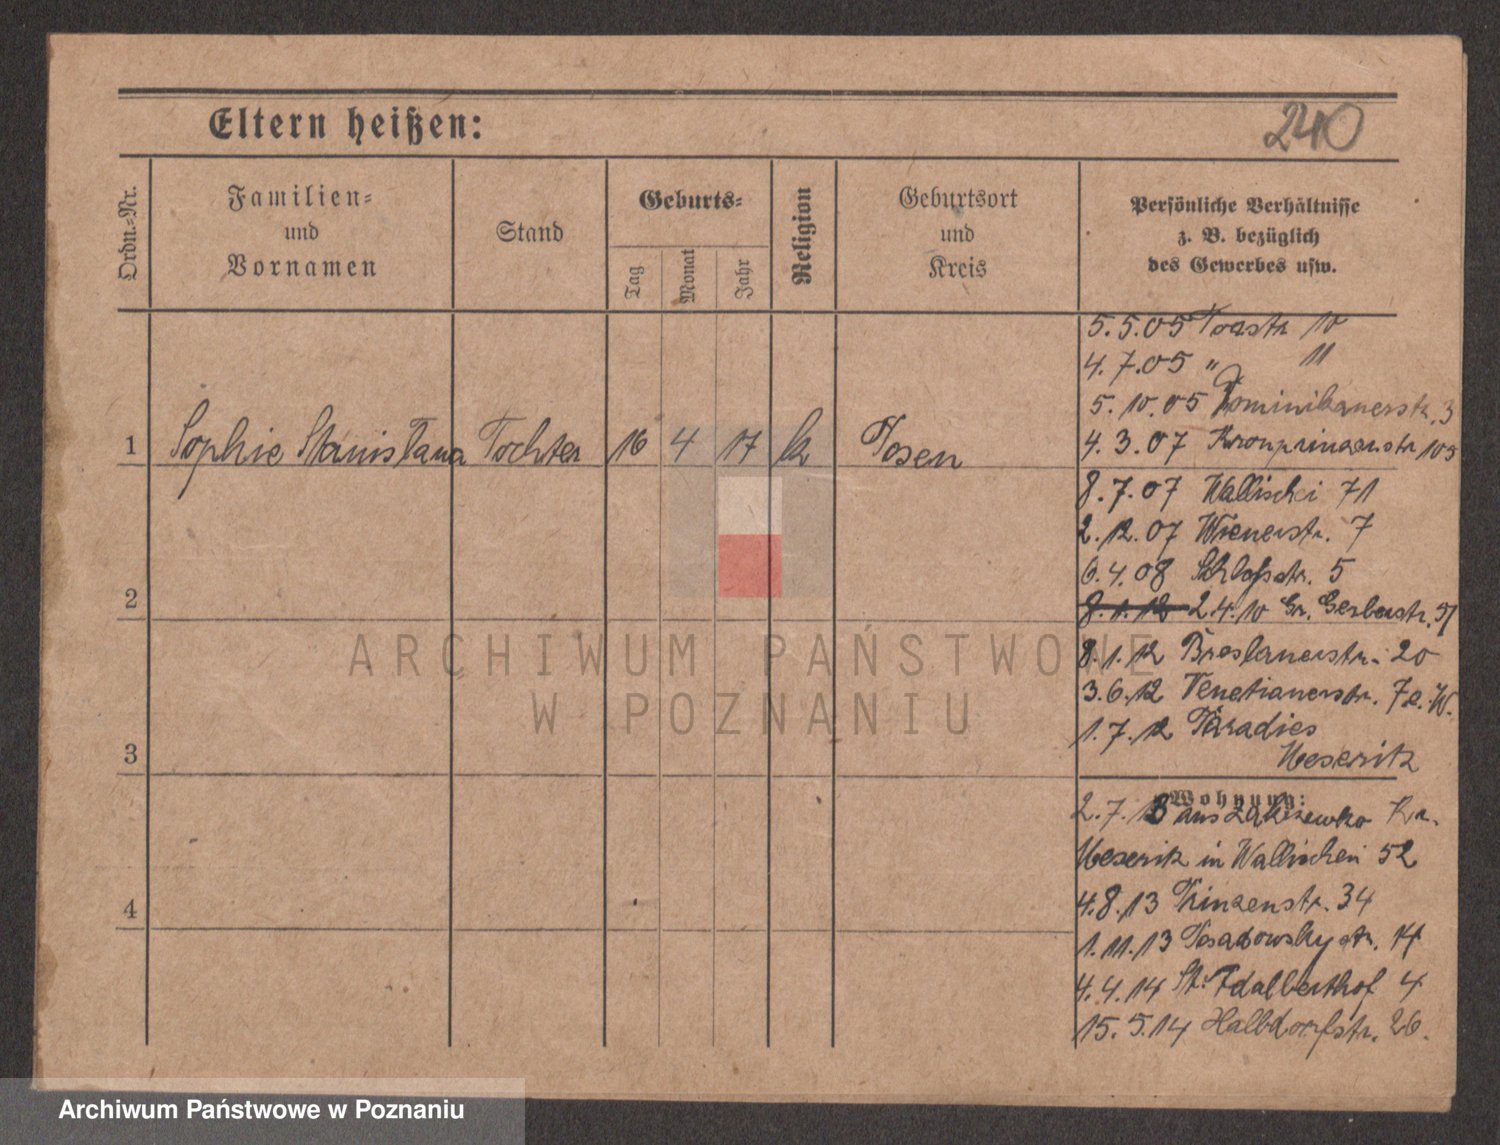 Eltern heißen:
240
Ordn.-Nr.
Familien-
und
Vornamen
Stand
Geburts-
Tag
Monat
Jahr
Religion
Geburtsort
und
Kreis
Persönliche Verhältnisse
z. B. bezüglich
des Gewerbes usw.
1 Sophie Stanislawa Tochter 16 4 17 k Posen
2
3
4
5.5.05 10
4.7.05 " 11
5.10.05 Dominikanerstr. 3
4.3.07 Kronprinzenstr 105
8.7.07 Wallischei 71
2.12.07 Wienerstr. 7
6.4.08 Schloßstr. 5
8.1.12 2.4.10 Gr. Gerberstr.
8.1.12 Breslauerstr. 20
3.6.12 Venetianerstr. 7
1.7.12 Paradies
Meseritz
Wohnung:
2.7.13 aus Kr.
Meseritz in Wallischei 52
4.8.13 Prinzenstr. 34
1.11.13 Posadowskystr. 14
4.4.14 St. Adalberthof 4
15.5.14 Halbdorfstr. 26.
ARCHIWUM PAŃSTWOWE
W POZNANIU
Archiwum Państwowe w Poznaniu